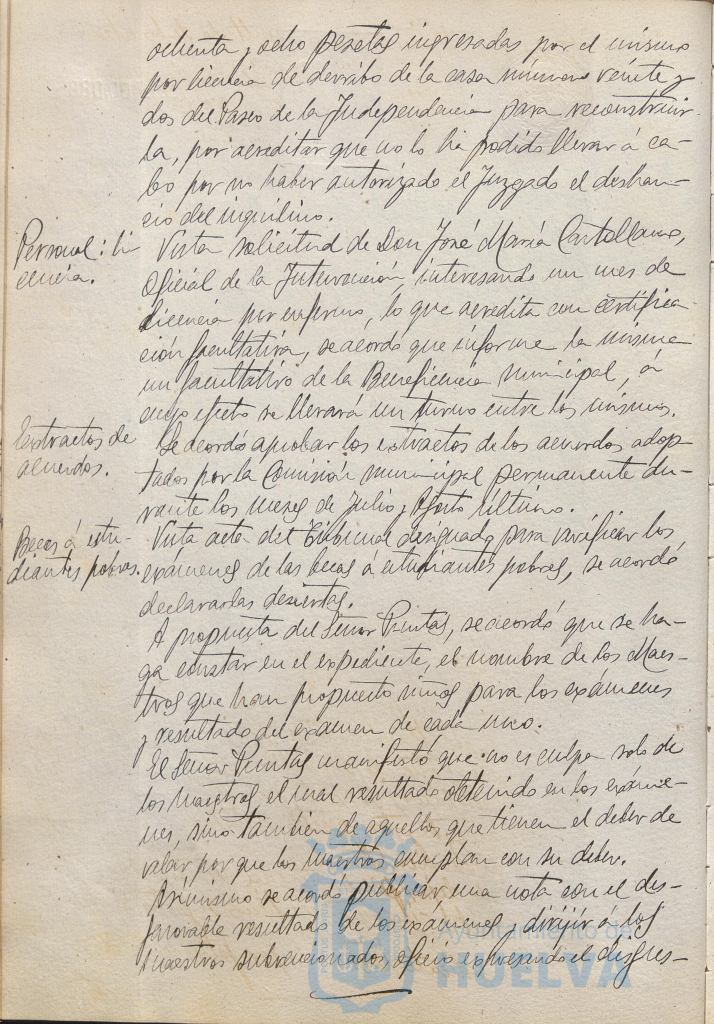 ochenta y ocho pesetas ingresadas por el mismo
por licencia de derribo de la casa número veinte y
dos del Paseo de la Independencia para reconstruir-
la, por acreditar que no lo ha podido llevar á ca-
bo por no haber autorizado el Juzgado el deshau-
cio del inquilino.
Personal: li
cencia.
Vista solicitud de Don José María
Oficial de la Intervención, interesando un mes de
licencia por enfermo, lo que acredita con certifica
ción facultativa, se acordó que informe la misma
un facultativo de la Beneficencia municipal, á
cuyo efecto se llevará un turno entre los mismos.
Extractos de
acuerdos.
Se acordó aprobar los extractos de los acuerdos adop-
tados por la Comisión municipal permanente du-
rante los meses de Julio y Agosto último.
Becas á estu-
diantes pobres.
Vista acta del Tribunal designado para verificar los
exámenes de las becas á estudiantes pobres, se acordó
declararlas desiertas.
A propuesta del Señor Puntas, se acordó que se ha-
ga constar en el expediente, el nombre de los Maes-
tros que han propuesto niños para los exámenes
y resultado del examen de cada uno.
El Señor Puntas manifestó que no es culpa solo de
los maestros, el mal resultado obtenido en los exáme-
nes, sino también de aquellos que tienen el deber de
velar por que los maestros cumplan con su deber.
Asimismo se acordó publicar una nota con el des-
favorable resultado de los exámenes y dirijir á los
maestros subvencionados, oficio expresando el disgus-
Ayuntamiento de
HUELVA